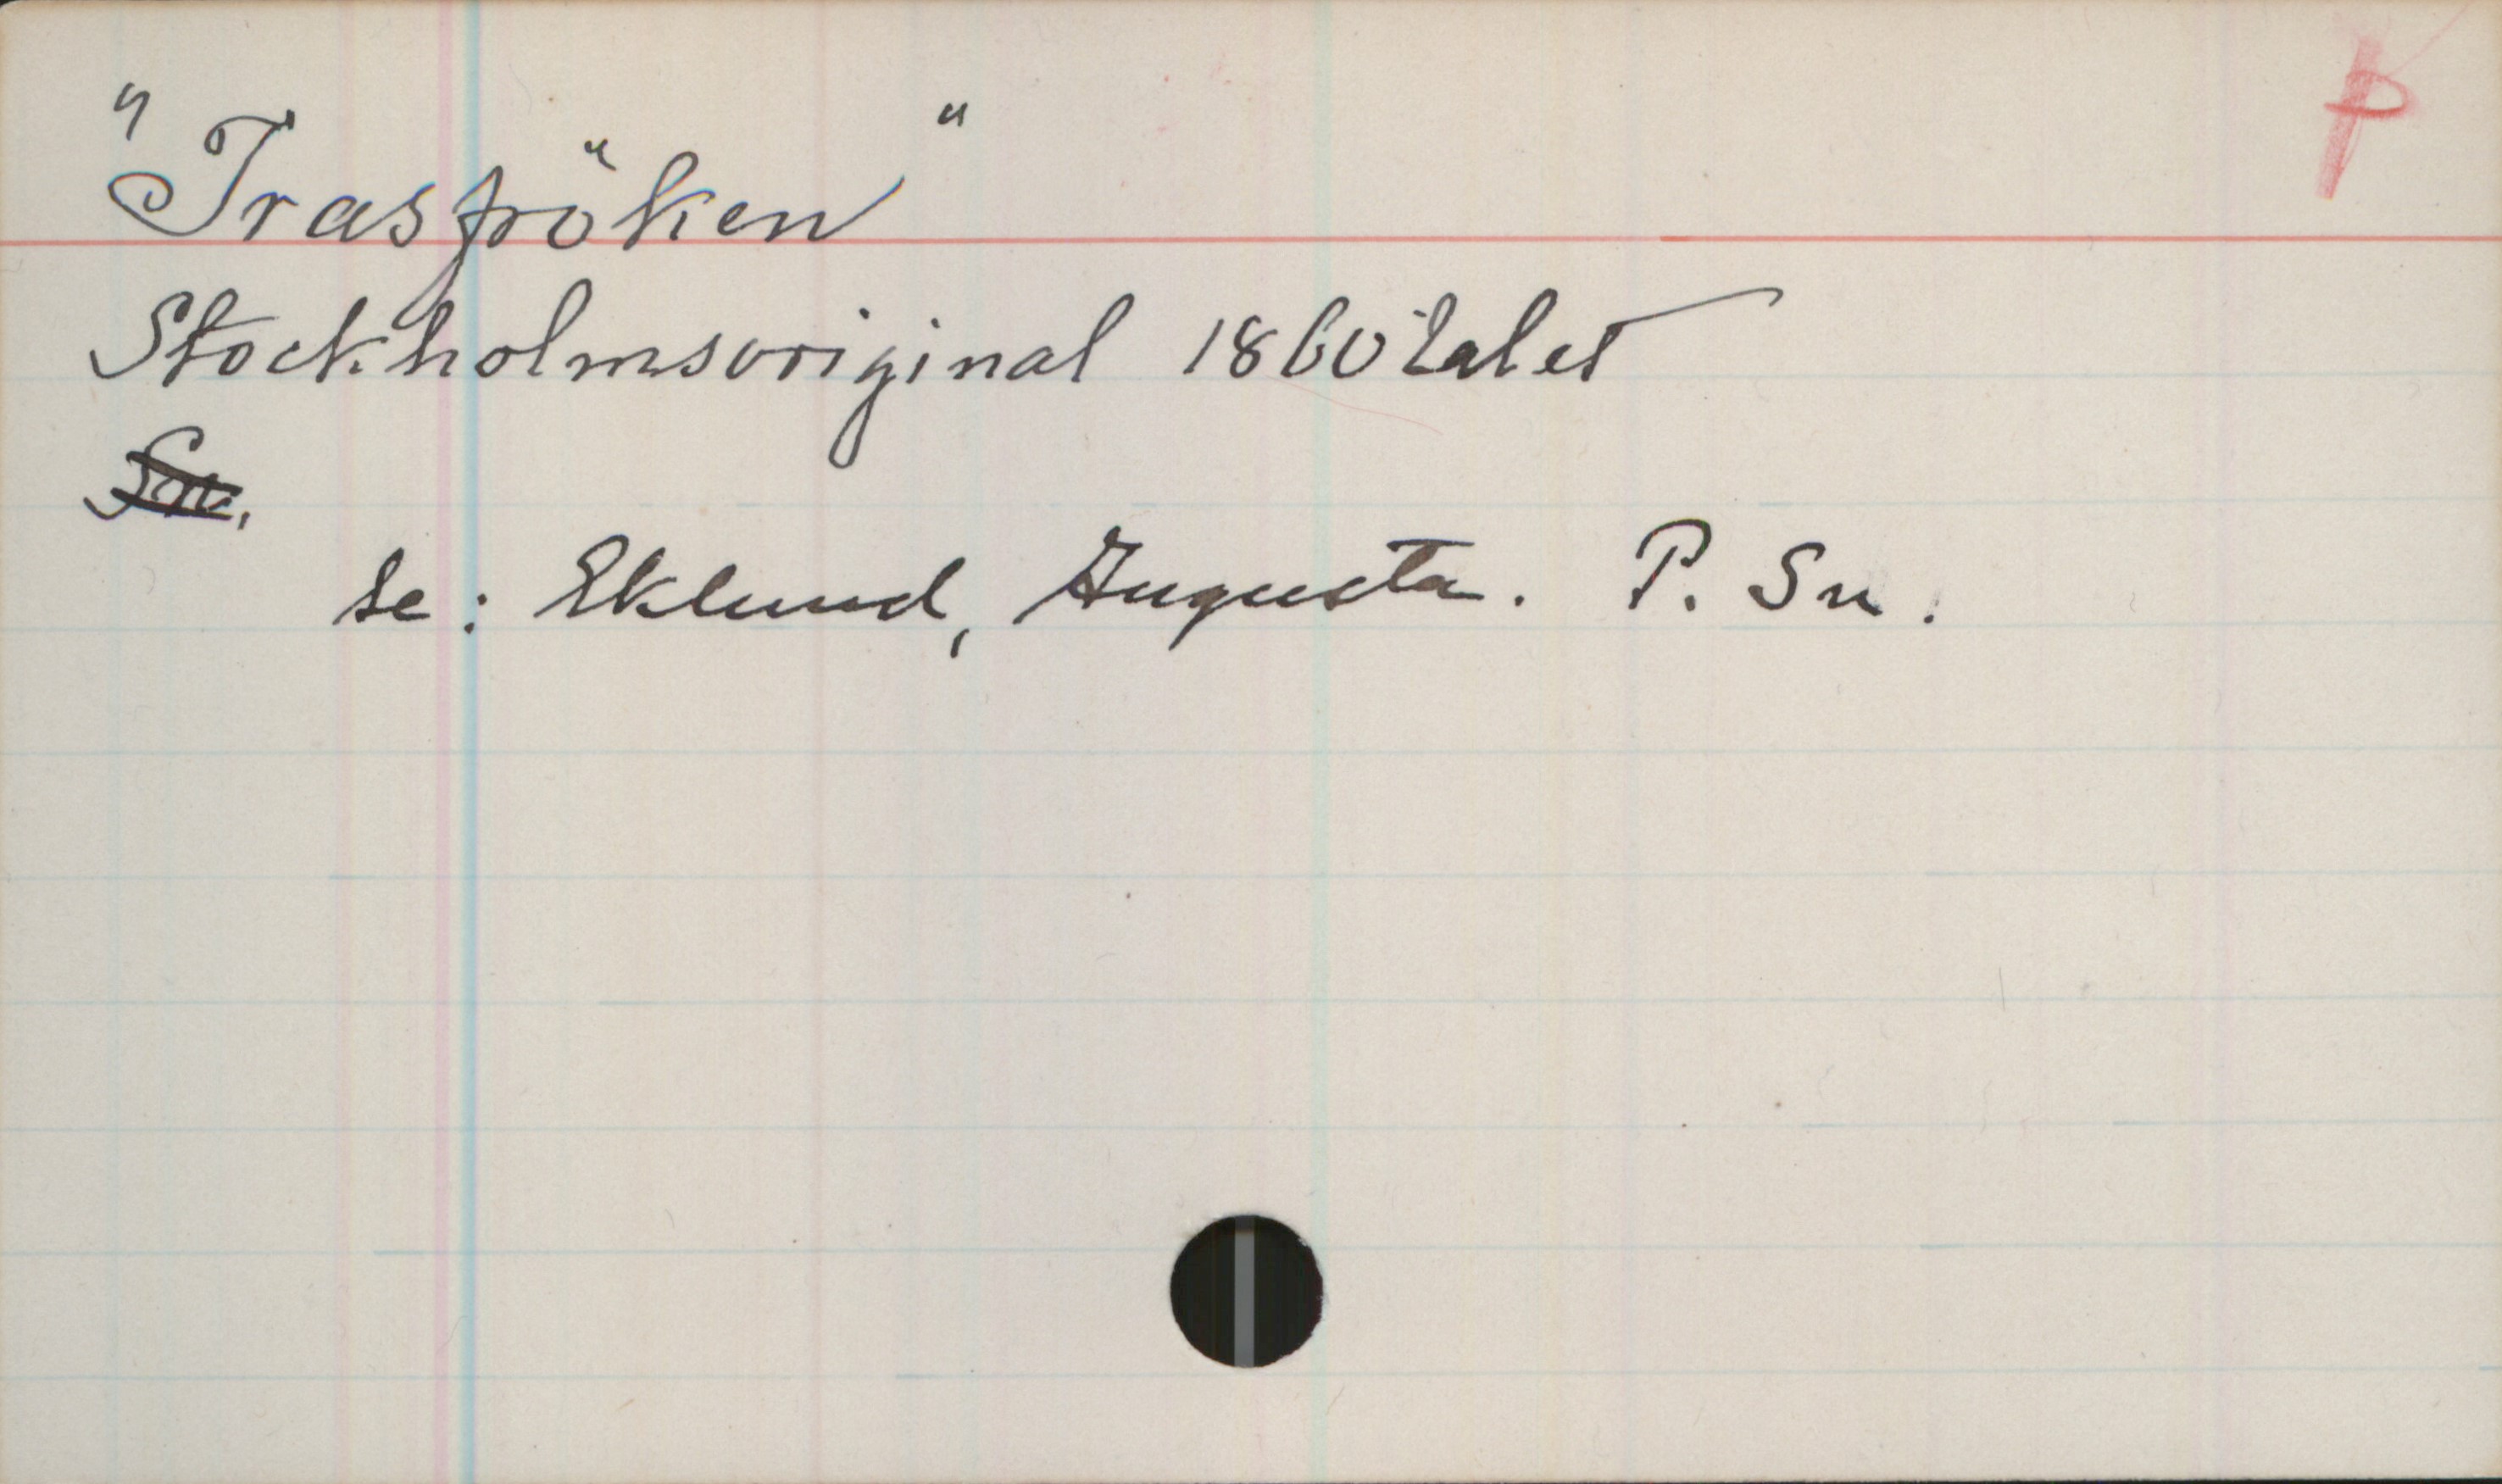 P
"Trasfröken"
Stockholmsoriginal 1860talet
Sn.
se: Eklund, Augusta. P. Sn.